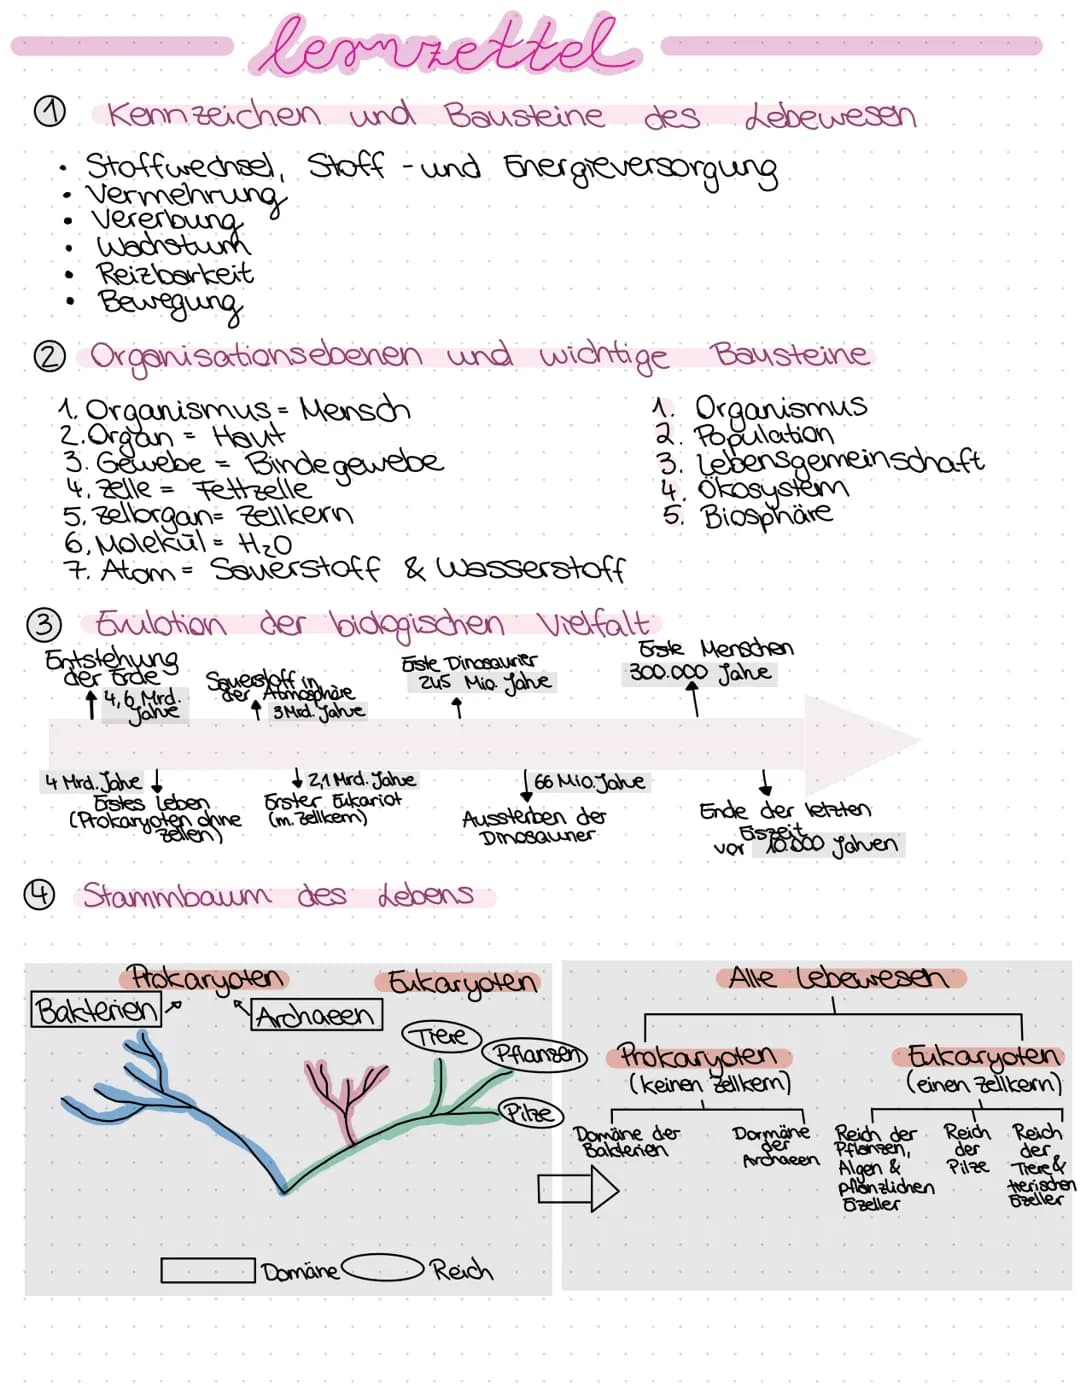 lernzettel
① Kennzeichen und Bausteine des Lebewesen
• Stoffwechsel, Stoff - und Energieversorgung
• Vermehrung
• Vererbung
• Wachstum
• Reizbarkeit
• Bewegung
② Organisationsebenen und wichtige Bausteine
1. Organismus = Mensch
2. Organ = Haut
3. Gewebe = Bindegewebe
4. Zelle = Fettzelle
5. Zellorgan = Zellkern
6. Molekül = H₂O
7. Atom = Sauerstoff & Wasserstoff
1. Organismus
2. Population
3. Lebensgemeinschaft
4. Ökosystem
5. Biosphäre
③ Evulotion der biologischen Vielfalt
Entstehung
der Erde
4,6 Mrd.
Jahre
Sauerstoff in
der Atmosphäre
3 Mrd. Jahre
Erste Dinosaurier
245 Mio. Jahre
Erste Menschen
300.000 Jahre
4 Mrd. Jahre
Erstes Leben
(Prokaryoten ohne
Zellen)
2,1 Mrd. Jahre
Erster Eukariot
(m. Zellkern)
66 Mio. Jahre
Aussterben der
Dinosaurier
Ende der letzten
Eiszeit
vor 10.000 Jahren
④ Stammbaum des Lebens
Prokaryoten
Eukaryoten
Bakterien
Archaeen
Tiere
Pflanzen
Pilze
Domäne
Reich
Alle Lebewesen
Prokaryoten
(keinen Zellkern)
Eukaryoten
(einen Zellkern)
Domäne der
Bakterien
Dormäne
der
Archaeen
Reich der
Pflanzen,
Algen &
pflanzlichen
Ezeller
Reich
der
Pilze
Reich
der
Tiere &
tierischen
Ezeller